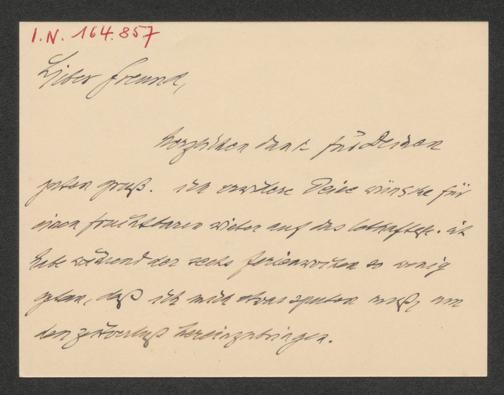 I.N. 164.857
Lieber Freund,
herzlichen Dank für Deinen
guten Gruß. ich erwidere Deine wünsche für
einen fruchtbaren winter auf das lebhafteste. ich
habe während der sechs ferienwochen so wenig
getan, daß ich mich etwas sputen muß, um
den zeitverlust hereinzubringen.